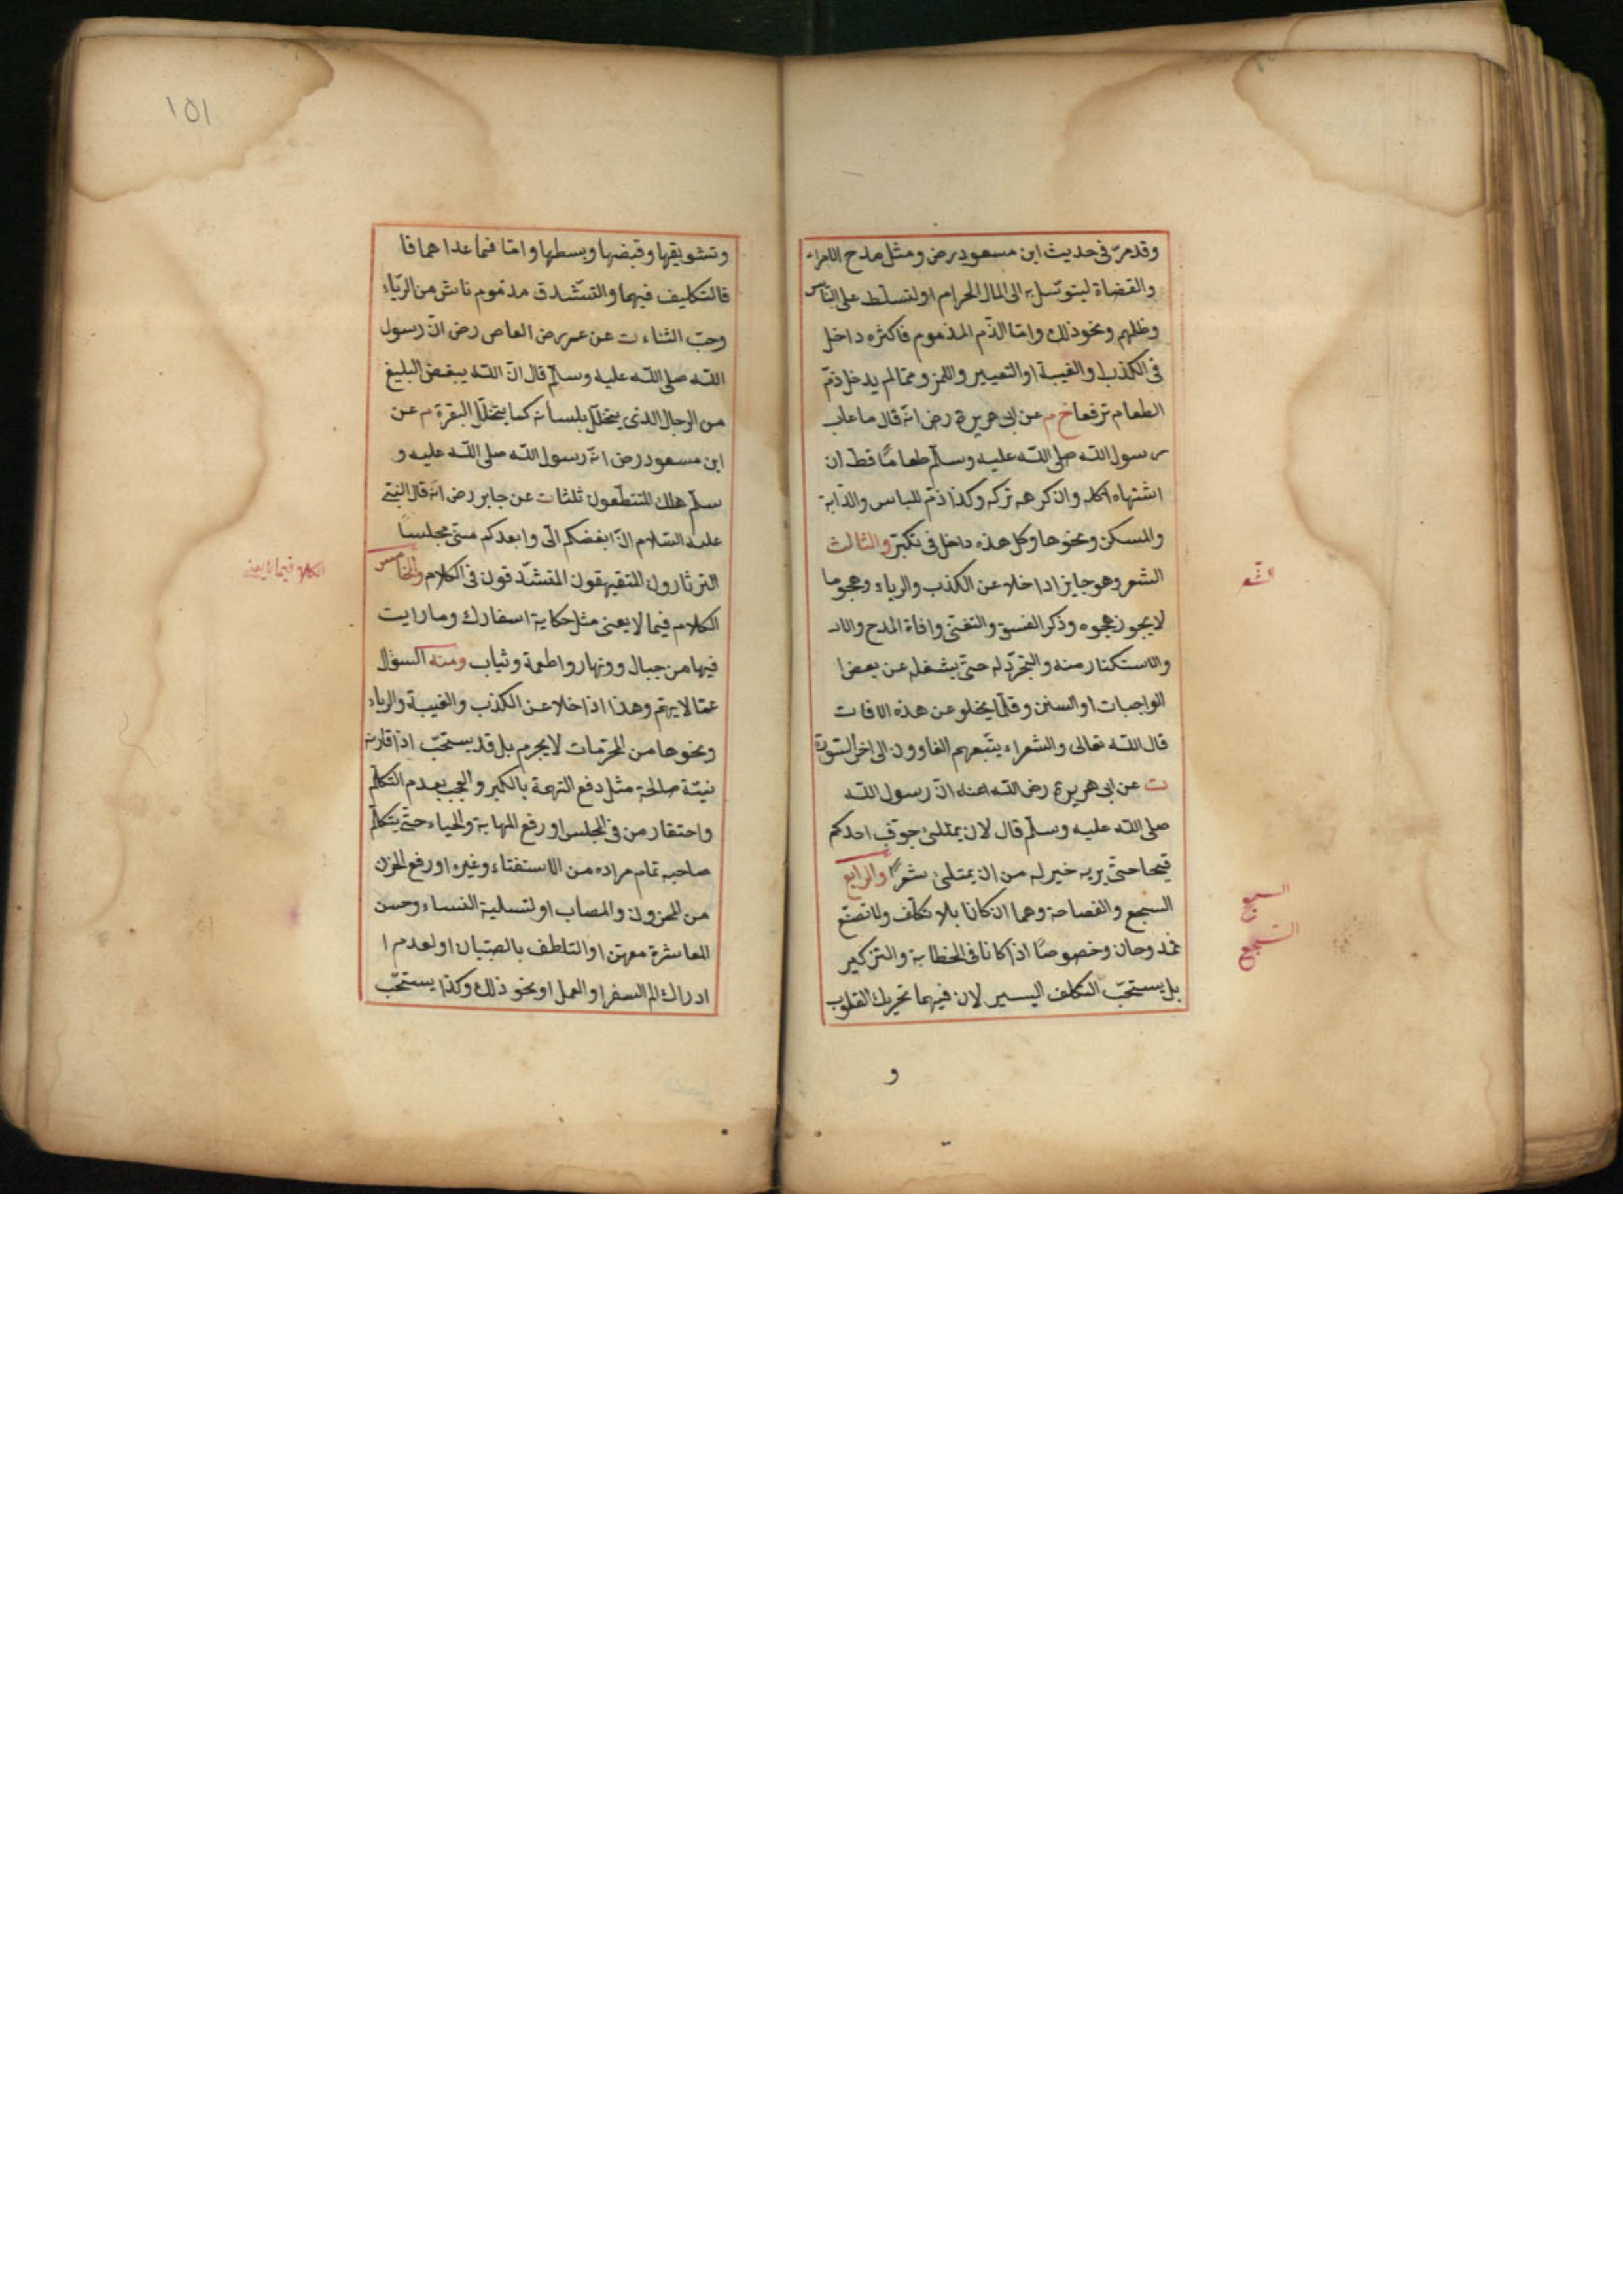 وقد مرّ فى حديث ابن مسعود رض ومثل مدح الامراء
والقضاة ليتوسّل به الى المال الحرام او لتسلّط على الناس
وظلمهم ونحو ذلك وامّا الذّم المذموم فاكثره داخل
فى الكذب او الغيبة او التعيير واللمز وممّا لم يدخل ذمّ
الطعام ترفعا خ م عن ابى هريرة رض انّه قال ما عاب
رسول الله صلى الله عليه وسلّم طعامًا قط ان
اشتهاه اكله وان كرهه تركه وكذا ذمّ اللباس والدّابة
والمسكن ونحوها وكل هذه داخل فى تكبّر والثالث
الشعر وهو جايز اذا خلا عن الكذب والرياء وهجو ما
لا يجوز هجوه وذكر الفسق والتغنّى وافاة المدح والا
والاستكثار منه والتجرّد له حتّى يشغله عن بعض ا
الواجبات او السنن وقلّما يخلو عن هذه الافات
قال الله تعالى والشعراء يتّبعهم الغاوون الى اخر السّورة
ت عن ابى هريرة رض الله عنه انّ رسول الله
صلى الله عليه وسلّم قال لان يمتلئ جوف احدكم
قيحا حتّى يريه خير له من ان يمتلئ شعرًا والرابع
السجع والفصاحة وهما ان كانا بلا تكلّف ولا تصنّع
ممدوحان وخصوصًا اذا كانا فى الخطابة والتزكير
بل يستحبّ التكلف اليسير لان فيهما تحريك القلوب
و
الشعر
السجع
السجع
١٥١
وتشويقها وقبضها وبسطها وامّا فيما عداهما فا
فالتكليف فيهما والتشّدق مذموم ناش من الريّاء
وحبّ الثناء ت عن عمر رض العاص رض انّ رسول
الله صلى الله عليه وسلّم قال انّ الله يبغض البليغ
من الرجال الذى يتخلّل بلسانه كما يتخلّل البقرة م عن
ابن مسعود رض انّ رسول الله صلى الله عليه و
سلّم هلك المتنطّعون ثلثا ت عن جابر رض انّه قال النبىّ
عليه السّلام انّ ابغضكم الىّ وابعدكم منىّ مجلسا
الثرثارون المتفيهقون المتشدّقون فى الكلام والخامس
الكلام فيما لا يعنى مثل حكاية اسفارك وما رايت
فيها من جبال وونهار واطعمة وثياب ومنه السؤال
عمّا لا يهمّ وهذا اذا خلا عن الكذب والغيبة والرياء
ونحوها من المحرّمات لا يحرم بل قد يستحبّ اذا قارنه
نيّة صالحة مثل دفع التهمة بالكبر والعجب بعدم التكلّم
واحتقار من فى المجلس او رفع المهابة والحياء حتّى يتكلّم
صاحبه تمام مراده من الاستفتاء وغيره او رفع الحزن
من المحزون والمصاب او لتسلية النساء وحسن
المعاشرة معهنّ او التلطف بالصبيان او لعدم ا
ادراك الم السفر او العمل او نحو ذلك وكذا يستحبّ
الكلام فيما لا يعنى